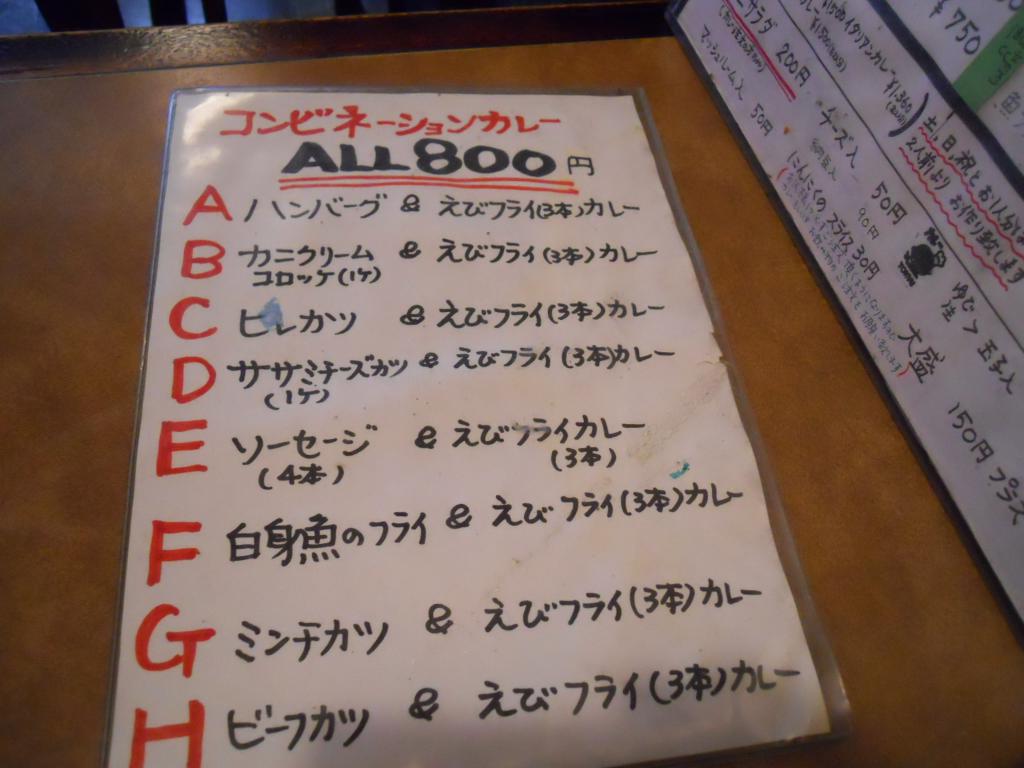 コンビネーションカレー
ALL800円
A ハンバーグ & えびフライ(3本)カレー
B カニクリーム & えびフライ(3本)カレー
コロッケ(1ケ)
C ヒレカツ & えびフライ(3本)カレー
D ササミチーズカツ & えびフライ(3本)カレー
(1ケ)
E ソーセージ & えびフライカレー
(4本) (3本)
F 白身魚のフライ & えびフライ(3本)カレー
G ミンチカツ & えびフライ(3本)カレー
H ビーフカツ & えびフライ(3本)カレー
¥750
イタリアンカレー ¥1,360
土日祝とお1人
2人前より お作り致します
サラダ 200円
マッシュルーム入 50円
チーズ入 50円
納豆入 90円
にんにくのスライス 30円
ゆで 生 > 玉子入
大盛 150円プラス